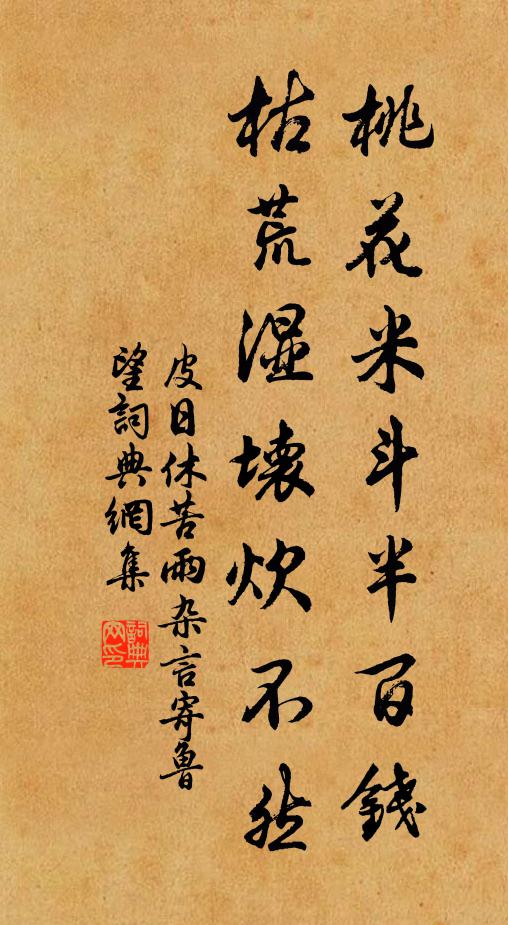 桃花米斗半百錢
枯荒湿壊炊不然
皮日休苦雨杂言寄魯
望詞典網集
詞典
网印